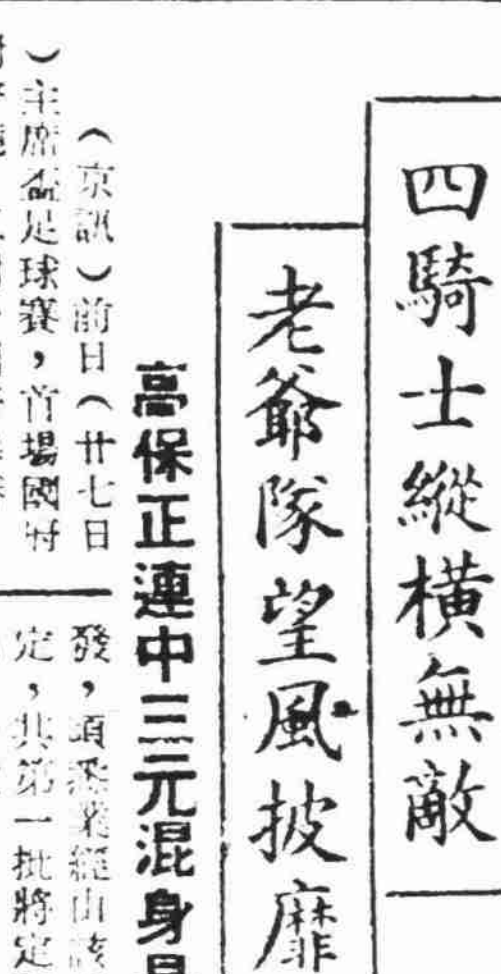 四騎士縱橫無敵
老爺隊望風披靡
高保正連中三元混身是
（京訊）前日（廿七日
）主席盃足球賽，首場國府
發，頃悉業經由該
定，共第一批將定